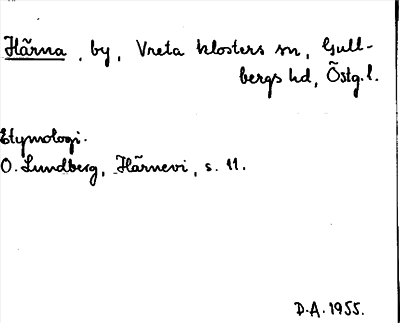 Härna, by, Vreta klosters sn, Gull-
bergs hd, Östg.l.
Etymologi.
O. Lundberg, Härnevi, s. 11.
D.A. 1955.